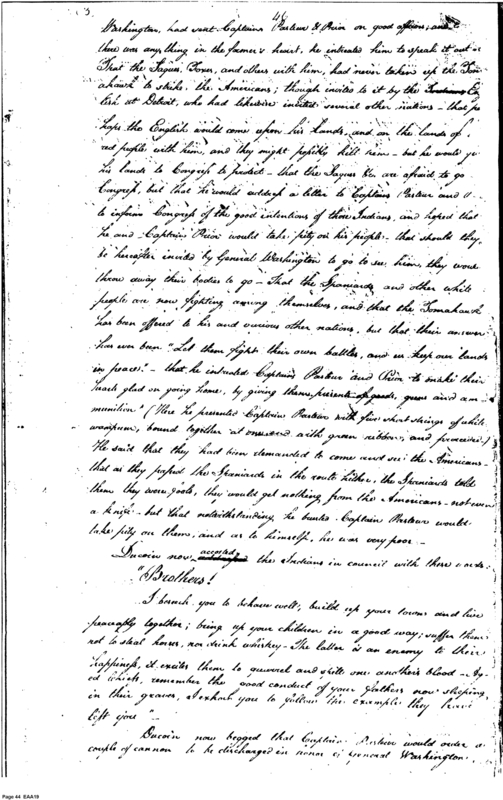 46
Washington, had sent Captains Pasteur & Prior on good affairs, and
there was anything in the farmer's heart, he intreated him to speak it out
That the Saques, Foxes, and others with him, had never taken up the Tom
ahawk to strike the Americans; though invited to it by the En
lish at Detroit, who had likewise invited several other nations - that pe
haps the English would come upon his lands, and on the lands of
red people with him, and they might possibly kill him - but he would
his lands to Congress to protect - that the Saques &ca are afraid to go
Congress, but that he would address a letter to Captains Pasteur and
to inform Congress of the good intentions of those Indians, and hoped that
he and Captain Prior would take pity on his people - that should they
be hereafter invited by General Washington to go to see him, they woud
throw away their bodies to go - That the Spaniards and other white
people are now fighting among themselves, and that the Tomahawk
has been offered to his and various other nations, but that their answer
has ever been "Let them fight their own battles, and us keep our lands
in peace" - that he intreated Captains Pasteur and Prior to make their
hearts glad on going home, by giving them presents of goods, guns and am
munition" (Here he presented Captain Pasteur with five short strings of white
wampum, bound together at one end with green ribbon, and proceeded)
He said that they had been demanded to come and see the Americans -
that as they passed the Spaniards in the route hither, the Spaniards told
them they were fools, they would get nothing from the Americans - not even
a knife - but that notwithstanding, he Captain Pasteur would
take pity on them, and as to himself, he was very poor -
Ducoin now the Indians in council with these words
"Brothers!
I beseech you to behave well, build up your towns and live
peaceably together; bring up your children in a good way; suffer them
not to steal horses, nor drink whiskey - The latter is an enemy to their
happiness, it excites them to quarrel and spill one another's blood - Ag
ed chiefs, remember the good conduct of your fathers now sleeping
in their graves, I exhort you to follow the example they have
left you" -
Ducoin now begged that Captain Pasteur would order a
couple of cannon to be discharged in honor of General Washington.
Page 44 EAA19